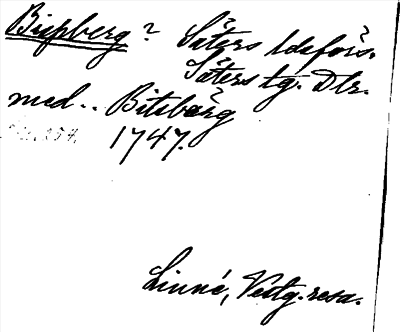 Bispberg? Säters ldsförs.
Säters tg. Dlr.
med.. Bitsbärg
1747.
Linné, Västg. resa.